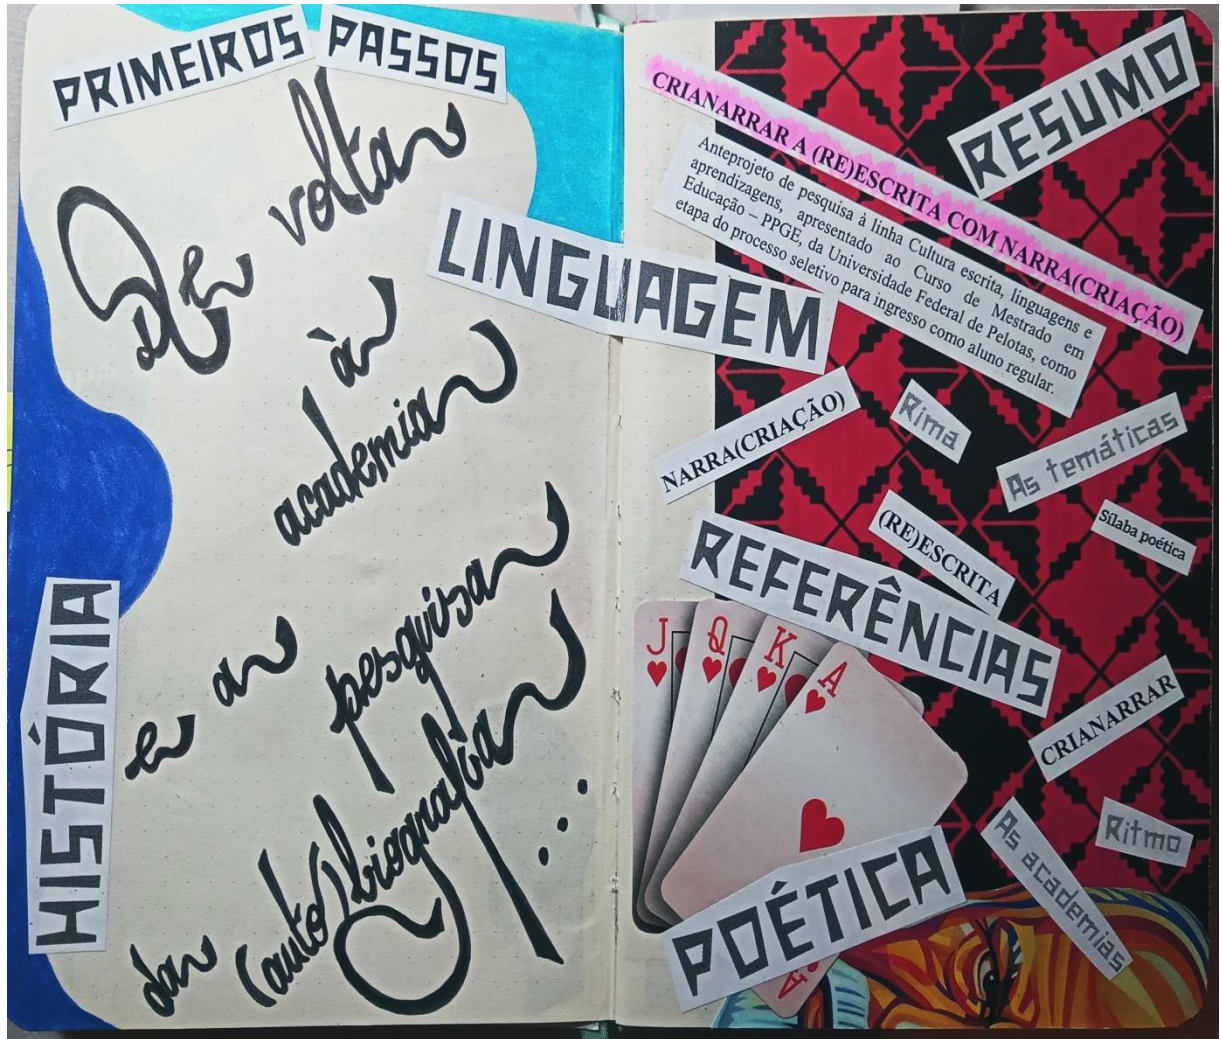 PRIMEIROS PASSOS
De volta
à
academia
e a pesquisa
da (auto)biografia...
HISTÓRIA
LINGUAGEM
RESUMO
CRIANARRAR A (RE)ESCRITA COM NARRA(CRIAÇÃO)
Anteprojeto de pesquisa à linha Cultura escrita, linguagens e
aprendizagens, apresentado ao Curso de Mestrado em
Educação – PPGE, da Universidade Federal de Pelotas, como
etapa do processo seletivo para ingresso como aluno regular.
NARRA(CRIAÇÃO)
Rima
As temáticas
Sílaba poética
(RE)ESCRITA
REFERÊNCIAS
J Q K A
CRIANARRAR
Ritmo
As academias
POÉTICA
A